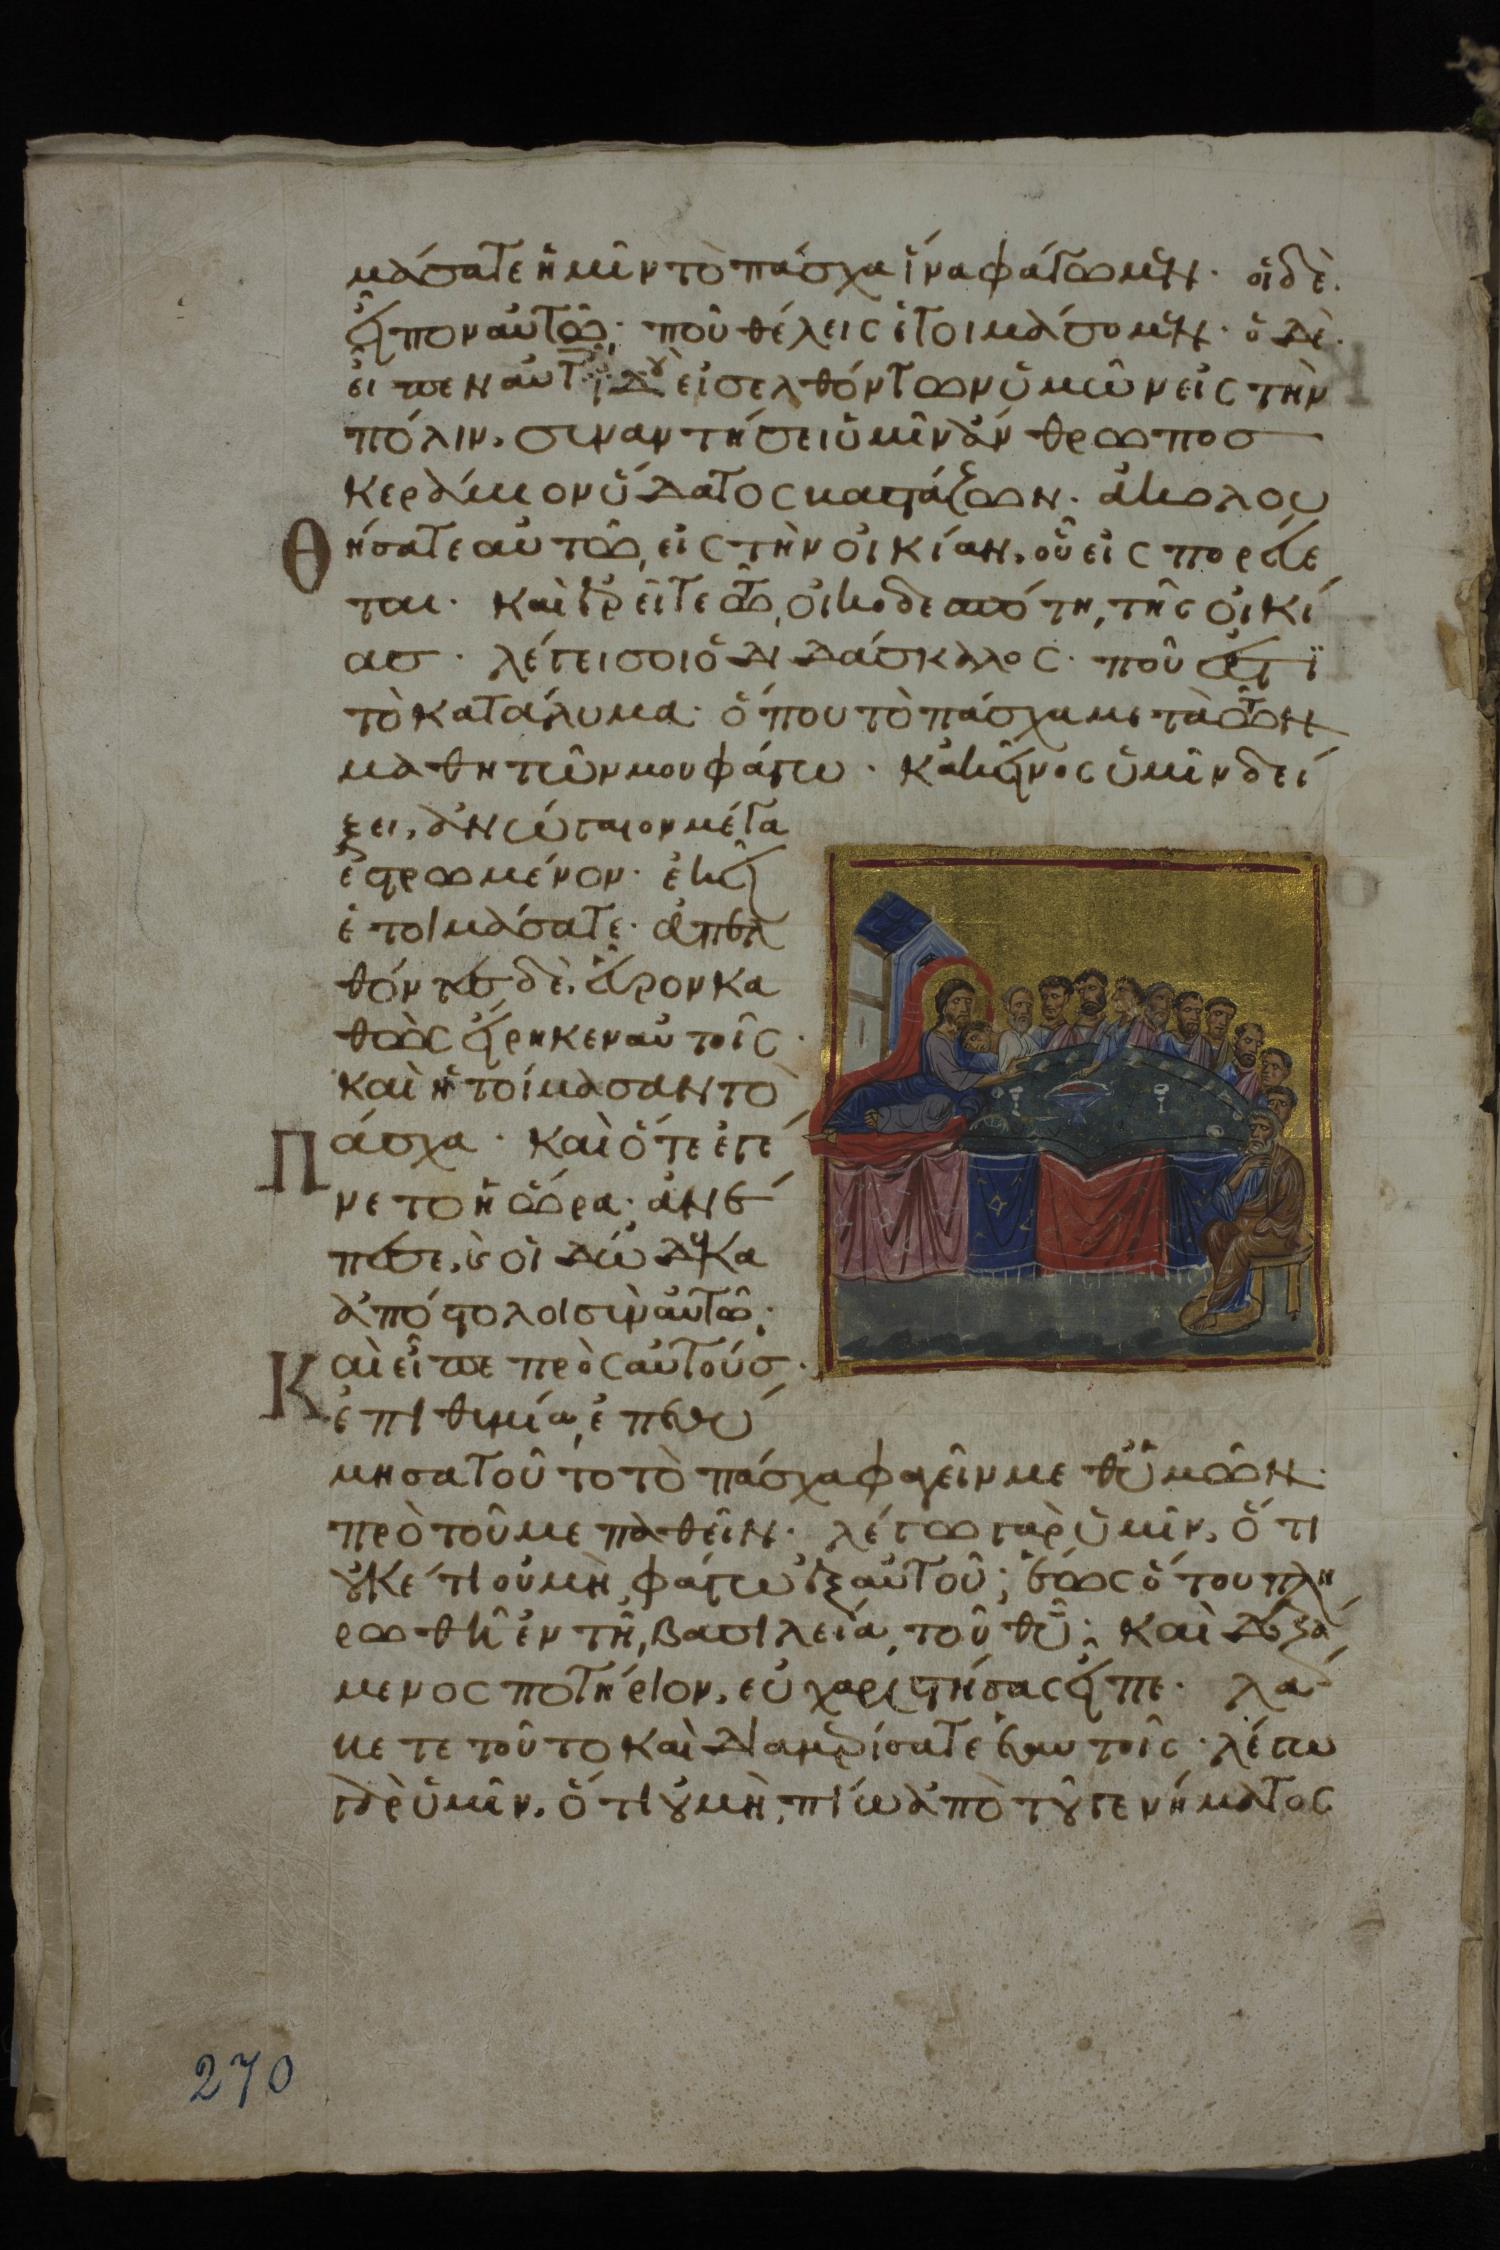 μάσατε ἡμῖν τὸ πάσχα ἵνα φάγωμεν· οἱ δὲ.
εἶπον αὐτῶ; ποῦ θέλεις ἑτοιμάσομεν· ὁ δὲ.
εἶπεν αὐτοῖς; ἰδοὺ εἰσελθόντων ὑμῶν εἰς τὴν
πόλιν, συναντήσει ὑμῖν ἄνθρωπος
κεράμιον ὕδατος βαστάζων. ἀκολου
θήσατε αὐτῶ, εἰς τὴν οἰκίαν, οὗ εἰσπορεύε
ται· καὶ ἐρεῖτε τῶ, οἰκοδεσπότη, τῆς οἰκί
ας· λέγει σοι ὁ διδάσκαλος· ποῦ ἐστϊ
τὸ κατάλυμα· ὅπου τὸ πάσχα μετὰ τῶν
μαθητῶν μου φάγω· κἀκεῖνος ὑμῖν δεί
ξει, ἀνώγαιον μέγα
ἐστρωμένον· ἐκεῖ
ἑτοιμάσατε· ἀπελ
θόντες δὲ, εὗρον κα
θὼς εἴρηκεν αὐτοῖς·
καὶ ἡτοίμασαν τὸ
πάσχα· καὶ ὅτε ἐγέ
νετο ἡ ὥρα· ἀνέ
πεσε, καὶ οἱ δώδεκα
ἀπόστολοι σὺν αὐτῶ;
Καὶ εἶπε πρὸς αὐτούς·
ἐπιθυμία, ἐπεθύ
μησα τοῦτο τὸ πάσχα φαγεῖν μεθ' ὑμῶν·
πρὸ τοῦ με παθεῖν· λέγω γὰρ ὑμῖν, ὅτι
οὐκέτι οὐ μὴ φάγω ἐξ αὐτοῦ; ἕως ὅτου πλη
ρωθῆ ἐν τῆ, βασιλεία, τοῦ θυ; καὶ δεξά
μενος ποτήριον, εὐχαριστήσας εἶπε· λά
βετε τοῦτο καὶ διαμερίσατε ἑαυτοῖς· λέγω
γὰρ ὑμῖν, ὅτι οὐ μὴ, πίω ἀπὸ τοῦ γενήματος
270